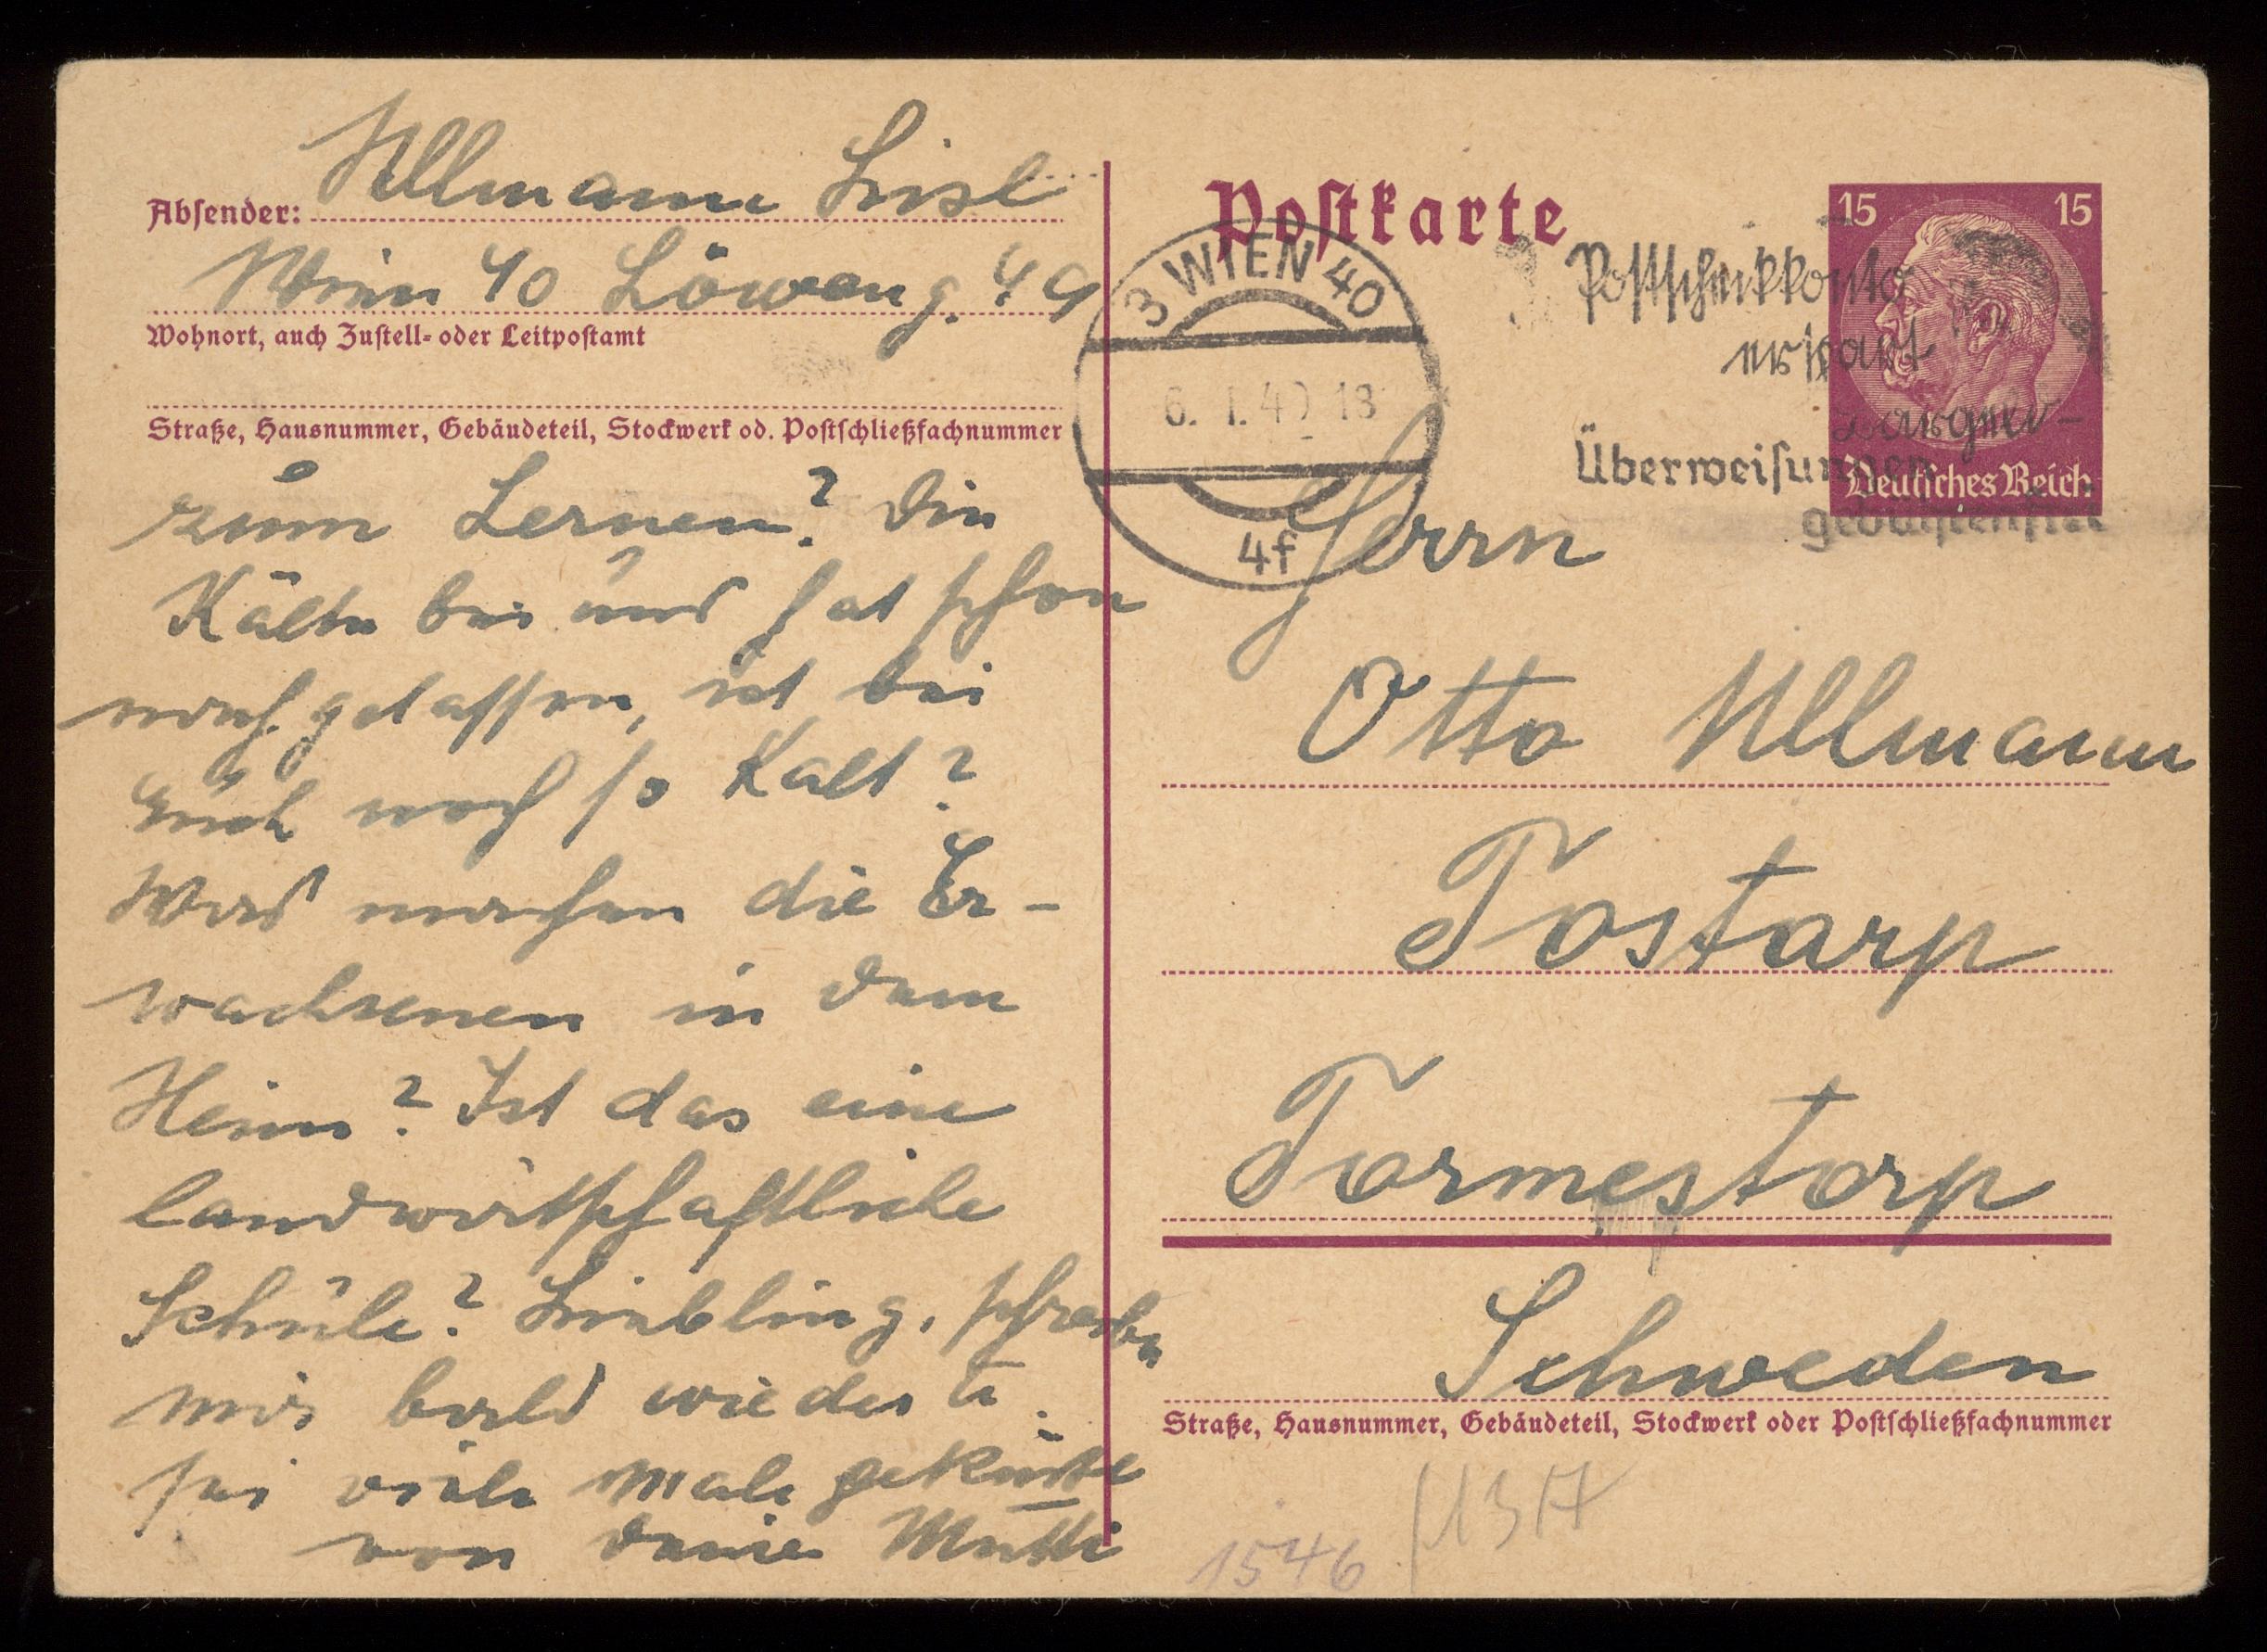 Absender: Ullmann Lisl
Wien 40 Löweng. 49
Wohnort, auch Zustell- oder Leitpostamt
Straße, Hausnummer, Gebäudeteil, Stockwerk od. Postschließfachnummer
zum Lernen? Die
Kälte bei uns hat schon
nachgelassen, ist bei
Euch noch so kalt?
Was machen die Er-
wachsenen in dem
Heim? Ist das eine
landwirtschaftliche
Schule? Liebling, schreibe
mir bald wieder u.
sei viele Male geküsst
von deiner Mutti
Postkarte
3 WIEN 40
6. 1. 40 18
4f
Postscheckkonto
erspart
Überweisungen
15 15
Deutsches Reich
Herrn
Otto Ullmann
Tostarp
Tormestorp
Schweden
Straße, Hausnummer, Gebäudeteil, Stockwerk oder Postschließfachnummer
1546